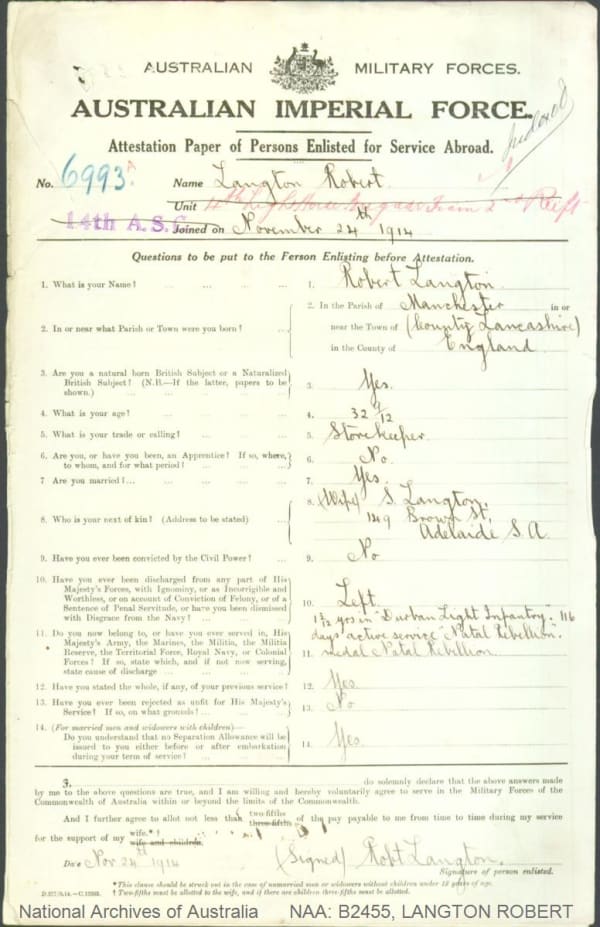 AUSTRALIAN MILITARY FORCES.
AUSTRALIAN IMPERIAL FORCE.
Indexed
Attestation Paper of Persons Enlisted for Service Abroad.
No. 6993 A Name Langton Robert
Unit 4th Light Horse Brigade Train 2nd Reeft
14th A.S.C. Joined on November 24th 1914
Questions to be put to the Person Enlisting before Attestation.
1. What is your Name? ... 1. Robert Langton
2. In or near what Parish or Town were you born? ... 2. In the Parish of Manchester in or
near the Town of (County Lancashire)
in the County of England
3. Are you a natural born British Subject or a Naturalized
British Subject? (N.B.—If the latter, papers to be
shown.) ... 3. Yes.
4. What is your age? ... 4. 32 9/12
5. What is your trade or calling? ... 5. Storekeeper.
6. Are you, or have you been, an Apprentice? If so, where,
to whom, and for what period? ... 6. No.
7. Are you married?... 7. Yes.
8. Who is your next of kin? (Address to be stated) ... 8. (Wife) S. Langton.
Brown St.
Adelaide S.A.
9. Have you ever been convicted by the Civil Power? ... 9. No
10. Have you ever been discharged from any part of His
Majesty's Forces, with Ignominy, or as Incorrigible and
Worthless, or on account of Conviction of Felony, or of a
Sentence of Penal Servitude, or have you been dismissed
with Disgrace from the Navy? ... 10. Left
11. Do you now belong to, or have you ever served in, His
Majesty's Army, the Marines, the Militia, the Militia
Reserve, the Territorial Force, Royal Navy, or Colonial
Forces? If so, state which, and if not now serving,
state cause of discharge ... 11. yrs in "Durban Light Infantry. 116
days active service "Natal Rebellion."
medal Natal Rebellion
12. Have you stated the whole, if any, of your previous service? 12. Yes.
13. Have you ever been rejected as unfit for His Majesty's
Service? If so, on what grounds? ... 13. No
14. (For married men and widowers with children)—
Do you understand that no Separation Allowance will be
issued to you either before or after embarkation
during your term of service? ... 14. Yes
I, do solemnly declare that the above answers made
by me to the above questions are true, and I am willing and hereby voluntarily agree to serve in the Military Forces of the
Commonwealth of Australia within or beyond the limits of the Commonwealth.
And I further agree to allot not less than two-fifths three-fifths of the pay payable to me from time to time during my service
for the support of my wife.*† wife and children.
Date Nov 24th 1914 (Signed) Robt Langton.
Signature of person enlisted.
*This clause should be struck out in the case of unmarried men or widowers without children under 18 years of age.
† Two-fifths must be allotted to the wife, and if there are children three-fifths must be allotted.
National Archives of Australia NAA: B2455, LANGTON ROBERT